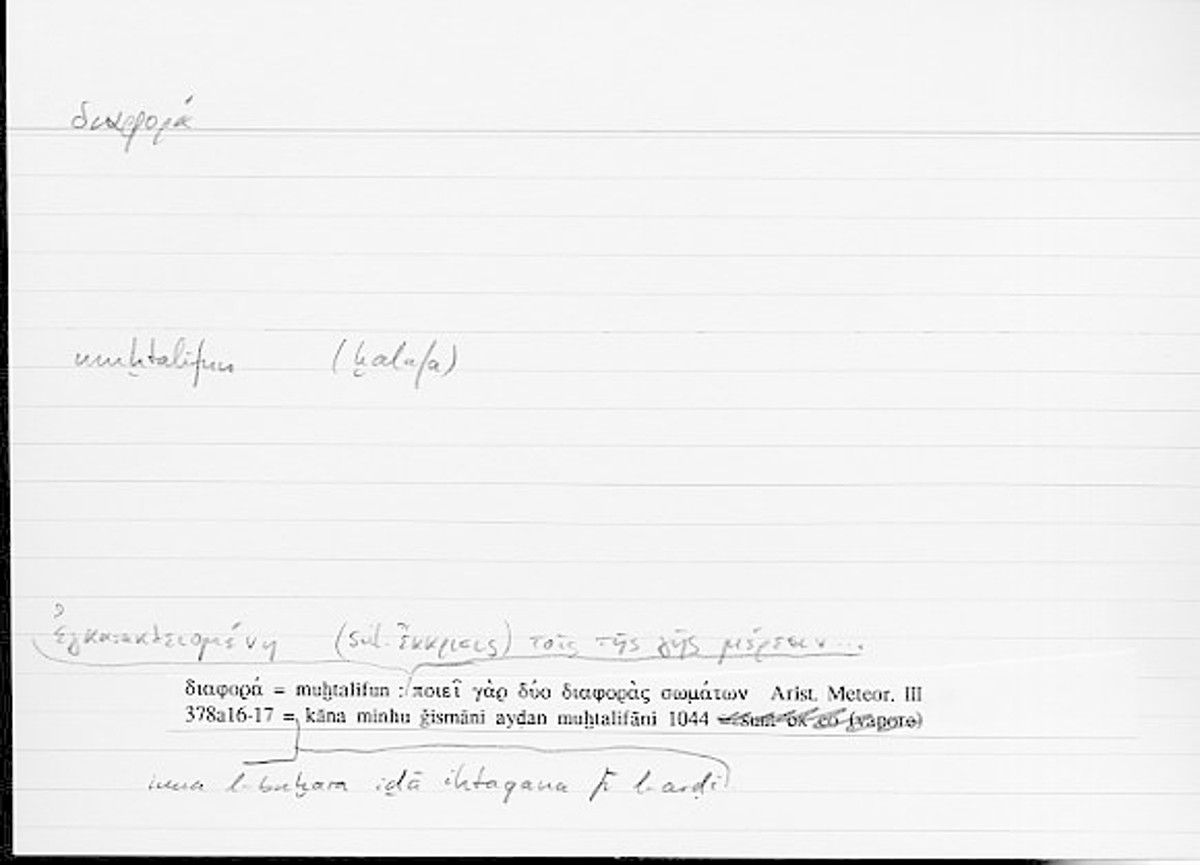 διαφορά
muḫtalifun (ḫalafa)
ἐγκατακλειομένη (scil. ἔκκρισις) τοῖς τῆς γῆς μέρεσιν...
διαφορά = muḫtalifun : ποιεῖ γὰρ δύο διαφορὰς σωμάτων Arist. Meteor. III
378a16-17 = kāna minhu ǧismāni ayḍan muḫtalifāni 1044 sunt ex eo (vapore)
inna l-buḫāra iḏā iḥtaqana fī l-arḍi